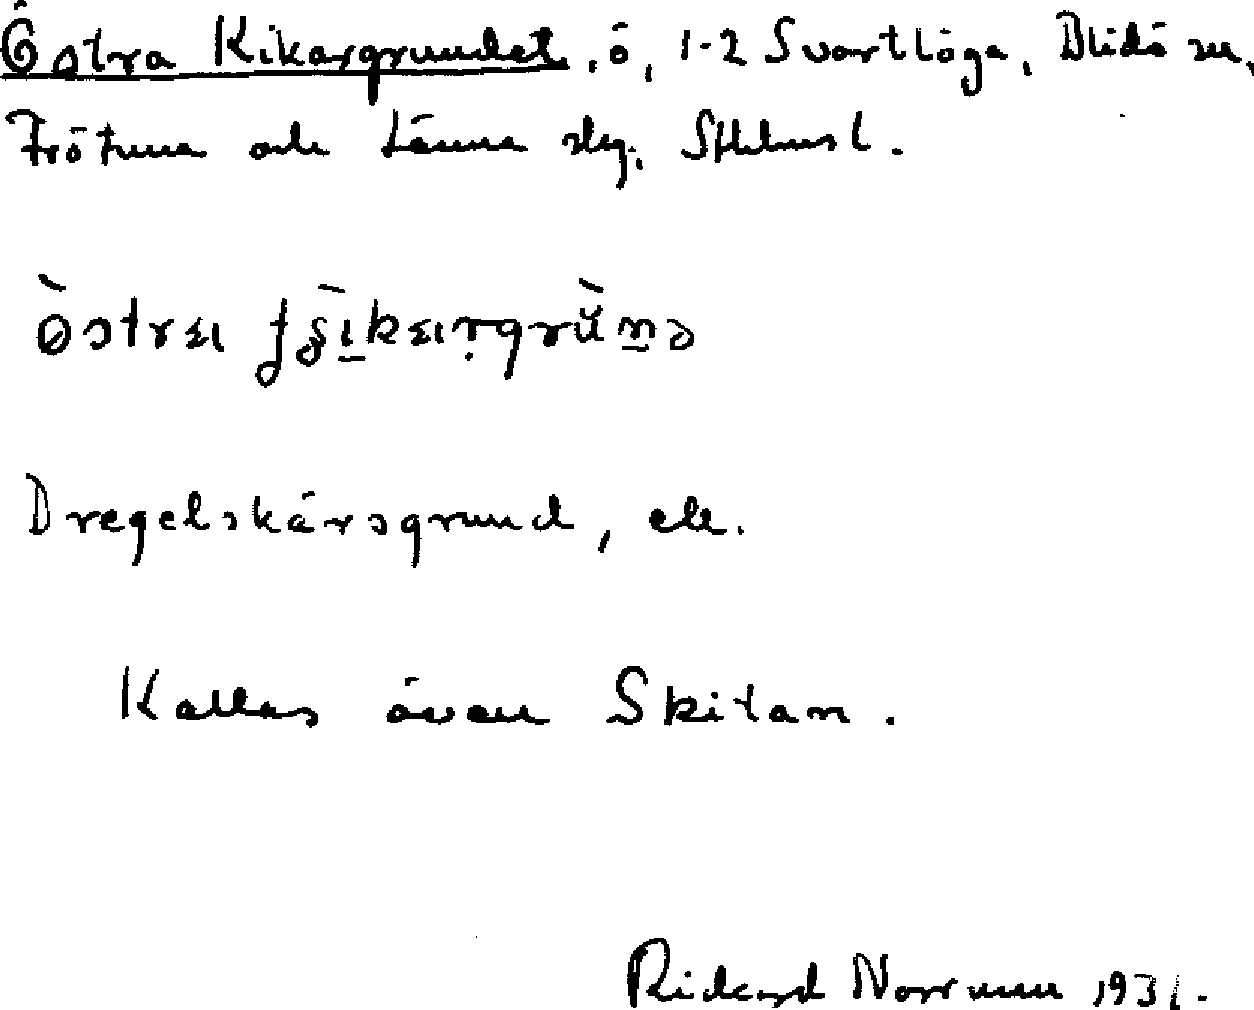 Östra Kikargrundet, ö, 1-2 Svartlöga, Blidö sn,
Frötuna och Länna slg, Sthlms l.
Dregelskärsgrund, ell.
Kallas även Skitan.
Rickard Norrman 1931.